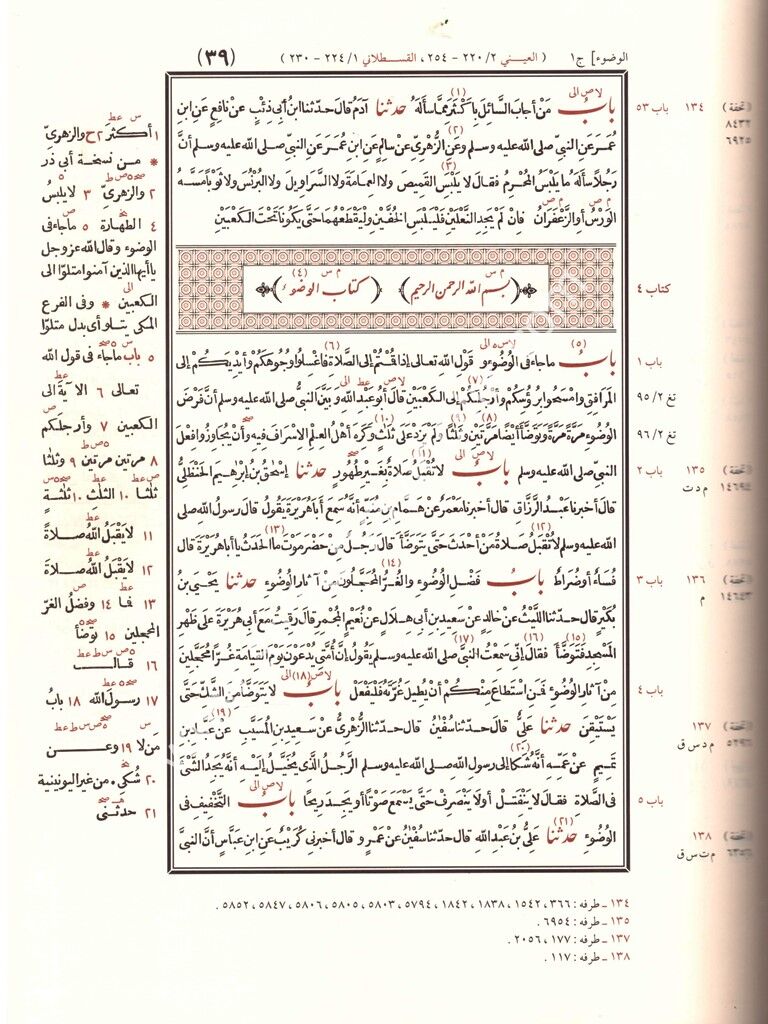 الوضوء] ج١ ( العيني ٢/ ٢٢٠ - ٢٥٤ ، القسطلاني ١/ ٢٢٤ - ٢٣٠ ) (٣٩)
باب مَنْ أجابَ السائلَ بأكثرَ مما سألهُ حدثنا آدمُ قال حدّثنا ابنُ أبي ذئبٍ عن نافعٍ عنِ ابنِ
عُمَرَ عنِ النبيّ صلى الله عليه وسلم وعنِ الزُّهْريِّ عن سالمٍ عنِ ابنِ عُمَرَ عنِ النبيّ صلى الله عليه وسلم أنَّ
رجُلاً سألهُ ما يَلْبَسُ المُحْرِمُ فقال لا يَلْبَسُ القميصَ ولا العِمامةَ ولا السَّراويلَ ولا البُرْنُسَ ولا ثوباً مَسَّهُ
الوَرْسُ أوِ الزَّعْفَرانُ فإنْ لم يَجِدِ النَّعْلَيْنِ فَلْيَلْبَسِ الخُفَّيْنِ ولْيَقْطَعْهُما حتى يكونا تحتَ الكَعْبَيْنِ
(بسم الله الرحمن الرحيم) (كتاب الوضوء)
باب ما جاء في الوُضوءِ وقولِ اللهِ تعالى إذا قُمْتُمْ إلى الصلاةِ فاغسِلُوا وُجُوهَكُمْ وأيْدِيَكُمْ إلى
المَرافِقِ وامْسَحُوا برُؤُسِكُمْ وأرْجُلَكُمْ إلى الكَعْبَيْنِ قال أبو عبدِ اللهِ وبَيَّنَ النبيُّ صلى الله عليه وسلم أنَّ فَرْضَ
الوُضوءِ مَرَّةً مَرَّةً وتَوَضَّأَ أيضاً مَرَّتَيْنِ وثلاثاً ولم يَزِدْ على ثلاثٍ وكَرِهَ أهلُ العِلْمِ الإسرافَ فيه وأنْ يُجاوِزُوا فِعْلَ
النبيِّ صلى الله عليه وسلم باب لا تُقْبَلُ صلاةٌ بغيرِ طُهُورٍ حدثنا إسحقُ بنُ إبرهيمَ الحَنْظَليُّ
قال أخبرنا عبدُ الرزّاقِ قال أخبرنا مَعْمَرٌ عن هَمّامِ بنِ مُنَبِّهٍ أنه سَمِعَ أبا هريرةَ يقولُ قال رسولُ اللهِ صلى
الله عليه وسلم لا تُقْبَلُ صلاةُ مَنْ أحْدَثَ حتى يَتَوَضَّأَ قال رجُلٌ مِنْ حَضْرَمَوْتَ ما الحَدَثُ يا أبا هريرةَ قال
فُسَاءٌ أوْ ضُرَاطٌ باب فَضْلِ الوُضوءِ والغُرُّ المُحَجَّلُونَ مِنْ آثارِ الوُضوءِ حدثنا يحيى بنُ
بُكَيْرٍ قال حدّثنا الليثُ عن خالدٍ عن سعيدِ بنِ أبي هِلالٍ عن نُعَيْمٍ المُجْمِرِ قال رَقِيتُ مع أبي هريرةَ على ظَهْرِ
المَسْجِدِ فَتَوَضَّأَ فقال إنّي سمعتُ النبيَّ صلى الله عليه وسلم يقولُ إنَّ أُمّتي يُدْعَوْنَ يومَ القيامةِ غُرّاً مُحَجَّلينَ
مِنْ آثارِ الوُضوءِ فمَنِ استطاعَ منكُمْ أنْ يُطِيلَ غُرَّتَهُ فَلْيَفْعَلْ باب لا يَتَوَضَّأُ مِنَ الشَّكِّ حتى
يَسْتَيْقِنَ حدثنا عليٌّ قال حدّثنا سُفْيانُ قال حدّثنا الزُّهْريُّ عن سعيدِ بنِ المُسَيَّبِ عن عَبَّادِ بنِ
تَمِيمٍ عن عَمِّهِ أنه شَكَا إلى رسولِ اللهِ صلى الله عليه وسلم الرجُلُ الذي يُخَيَّلُ إليه أنه يَجِدُ الشيءَ
في الصلاةِ فقال لا يَنْفَتِلْ أوْ لا يَنْصَرِفْ حتى يَسْمَعَ صوتاً أوْ يَجِدَ ريحاً باب التخفيفِ في
الوُضوءِ حدثنا عليُّ بنُ عبدِ اللهِ قال حدّثنا سُفْيانُ عن عَمْرٍو قال أخبرني كُرَيْبٌ عنِ ابنِ عباسٍ أنَّ النبيَّ
١٣٤ باب ٥٣
٨٤٣٢
٦٩٢٥
كتاب ٤
باب ١
تغ ٢/ ٩٥
تغ ٢/ ٩٦
١٣٥ باب ٢
م د ت
١٣٦ باب ٣
١٤٦٤٣ م
باب ٤
١٣٧
٥٢٩٦ م د س ق
باب ٥
١٣٨
٦٣٥٦ م ت س ق
١ أكثر ٢ ح والزهريّ
* من نسخة أبي ذر
٢ والزهريّ ٣ لا يلبس
٤ الطهارة ٥ ما جاء في
الوضوء وقال الله عز وجل
يا أيها الذين آمنوا متلوا الى
الكعبين * وفى الفرع
المكى يتلو أى بدل متلوا
٥ باب ما جاء فى قول الله
تعالى ٦ الآية الى
الكعبين ٧ وأرجلكم
٨ مرتين مرتين ٩ وثلثا
ثلثا ١٠ الثلث ١٠ ثلثة
١١ لا يقبل الله صلاة
١٢ لا يقبل الله صلاة
١٣ فما ١٤ وفضل الغرّ
المحجلين ١٥ توضأ
١٦ قال
١٧ رسول الله ١٨ باب
من لا ١٩ وعن
٢٠ شُكى . من غير اليونينية
٢١ حدثنى
١٣٤ ـ طرفه : ٣٦٦ ، ١٥٤٢ ، ١٨٣٨ ، ١٨٤٢ ، ٥٧٩٤ ، ٥٨٠٣ ، ٥٨٠٥ ، ٥٨٠٦ ، ٥٨٤٧ ، ٥٨٥٢ .
١٣٥ ـ طرفه : ٦٩٥٤ .
١٣٧ ـ طرفه : ١٧٧ ، ٢٠٥٦ .
١٣٨ ـ طرفه : ١١٧ .